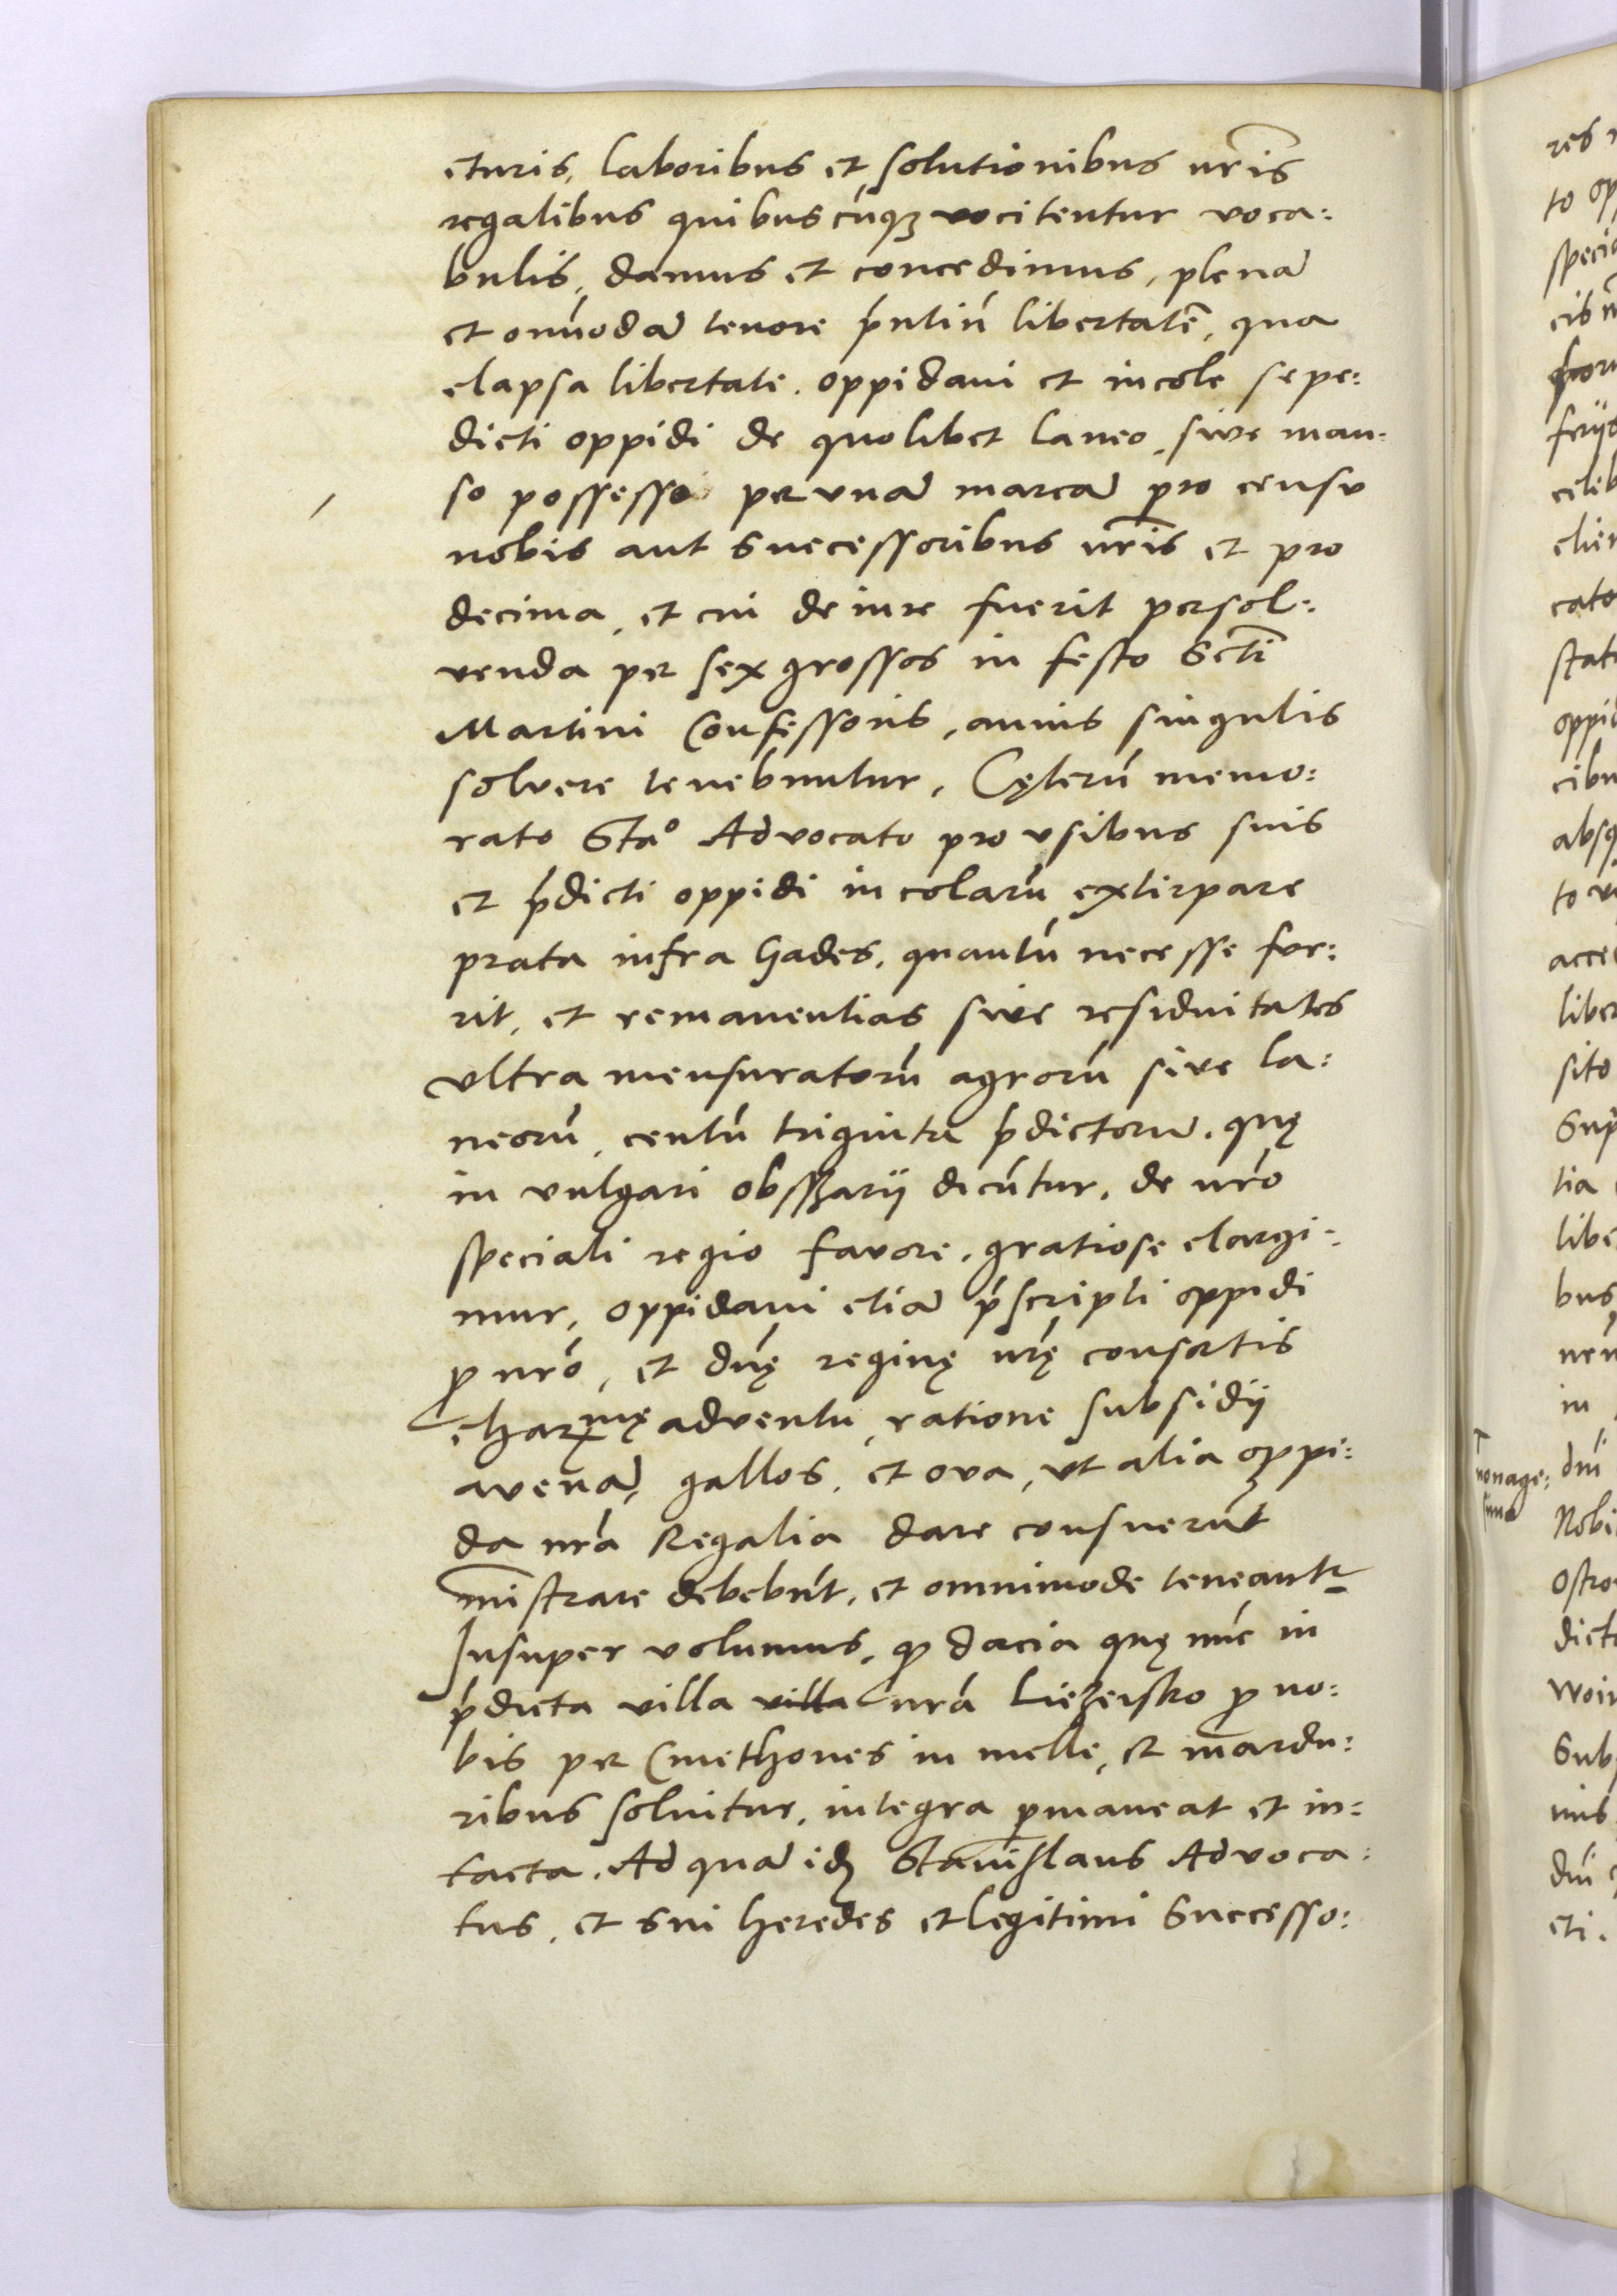 cturis, laboribus et solutionibus nr̃is
regalibus quibuscũqȝ vocitentur voca:
bulis, damus et concedimus, plenã
et om̃modã tenore p̃ntiũ libertatẽ, qua
elapsa libertate. oppidani et incole sepe:
dicti oppidi de quolibet laneo, sive man:
so possesso per unã marcã pro censu
nobis aut Successoribus nr̃is et pro
decima, et cui de iure fuerit persol:
venda per sex grossos in festo Sctĩ
Martini Confessoris, annis singulis
solvere tenebuntur, Cęterũ memo:
rato Stão Advocato pro usibus suis
et p̃dicti oppidi incolarũ extirpare
prata infra Gades, quantũ necesse fue:
rit, et remanentias sive residuitates
ultra mensuratorũ agrorũ sive la:
neorũ, centũ triginta p̃dictorum, quę
in vulgari obsßarÿ dicũtur, de nr̃o
speciali regio favore, gratiose elargi:
mur, oppidani etiã p̃scripti oppidi
ꝓ nr̃o, et dn̄ę reginę nr̃ę consortis
charmę adventu, ratione subsidÿ
avenã, gallos, et ova, ut alia oppi:
da nr̃a Regalia dare consuerũt
mĩstrare debebũt, et omnimode teneantr
Insuper volumus, ꝙ dacia quę nũc in
p̃dicta villa villa nr̃a Liezeisko ꝓ no:
bis per Cmethones in melle, et mardu:
ribus solvitur, integra ꝑmaneat et in:
tacta. Ad quã idȝ Stanislaus Advoca:
tus, et sui heredes et legitimi Successo:
res
to op
feryd
celeb
clien
cato
statu
oppid
cibu
absq
to
accel
liber
sito
Sup
tia
libe
bus
in
dñi
nonage:
sima
Nobi
Ostro
dicto
Woin
Sub
eti.